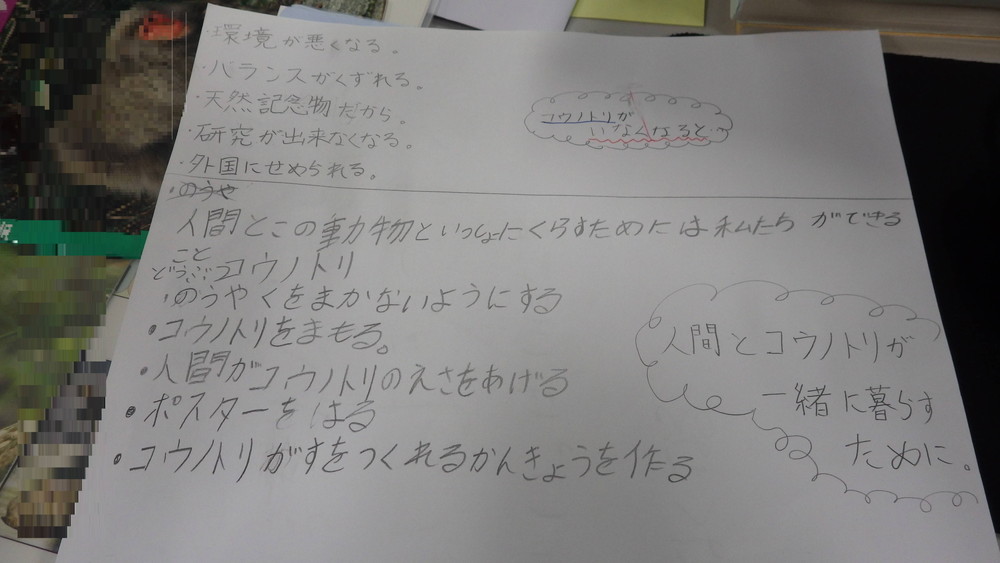 ・環境が悪くなる。
・バランスがくずれる。
・天然記念物だから。
・研究が出来なくなる。
・外国にせめられる。
コウノトリが
いなくなると…
・のうや
人間とこの動物といっしょにくらすためには私たちができる
こと
どうぶつ コウノトリ
・のうやくをまかないようにする
・コウノトリをまもる。
・人間がコウノトリのえさをあげる
・ポスターをはる
・コウノトリがすをつくれるかんきょうを作る
人間とコウノトリが
一緒に暮らす
ために。